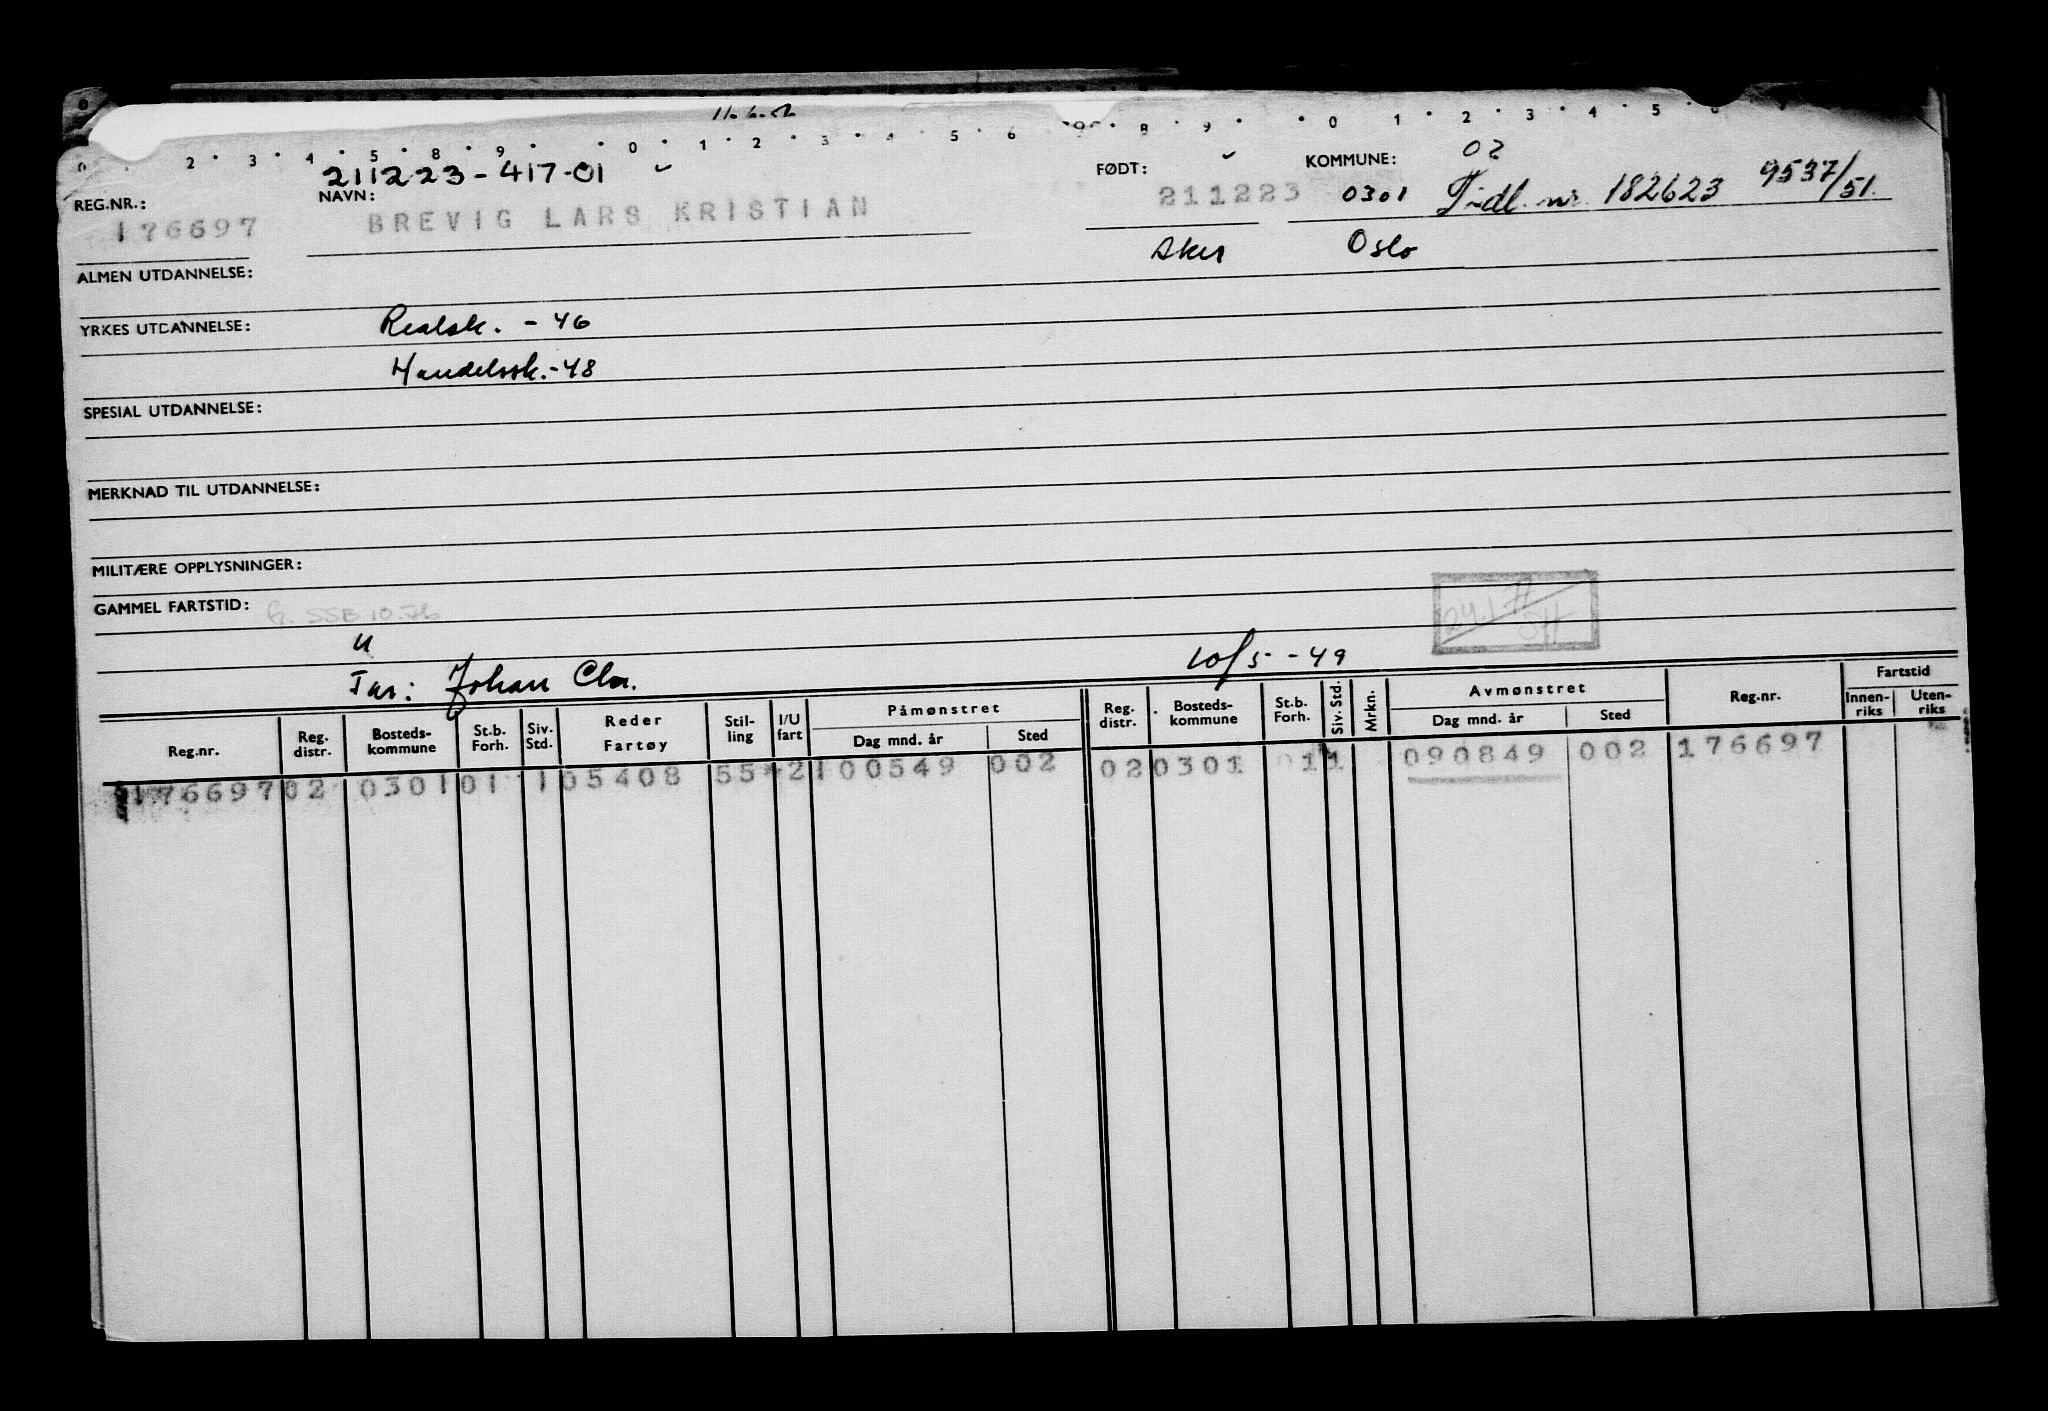 0 2 3 4 5 8 9 0 1 2 3 4 5 6 8 9 0 1 2 3 4 5
211223-417-01
02
REG.NR.: NAVN: FØDT: KOMMUNE:
176697 BREVIG LARS KRISTIAN 211223 0301 Tidl. nr. 182623 9537/51.
Aker Oslo
ALMEN UTDANNELSE:
YRKES UTDANNELSE: Realsk. - 46
Handelssk. - 48
SPESIAL UTDANNELSE:
MERKNAD TIL UTDANNELSE:
MILITÆRE OPPLYSNINGER:
GAMMEL FARTSTID: SSB 10.76
U
Far: Johan Chr. 10/5 - 49
Reg.nr. Reg. distr. Bosteds-kommune St.b. Forh. Siv. Std. Reder Fartøy Stil-ling I/U fart Påmønstret Dag mnd. år Sted Reg. distr. Bosteds-kommune St.b. Forh. Siv. Std. Mrkn. Avmønstret Dag mnd. år Sted Reg.nr. Fartstid Innen-riks Uten-riks
176697 02 0301 01 1 05408 55 2 100549 002 02 0301 01 1 090849 002 176697